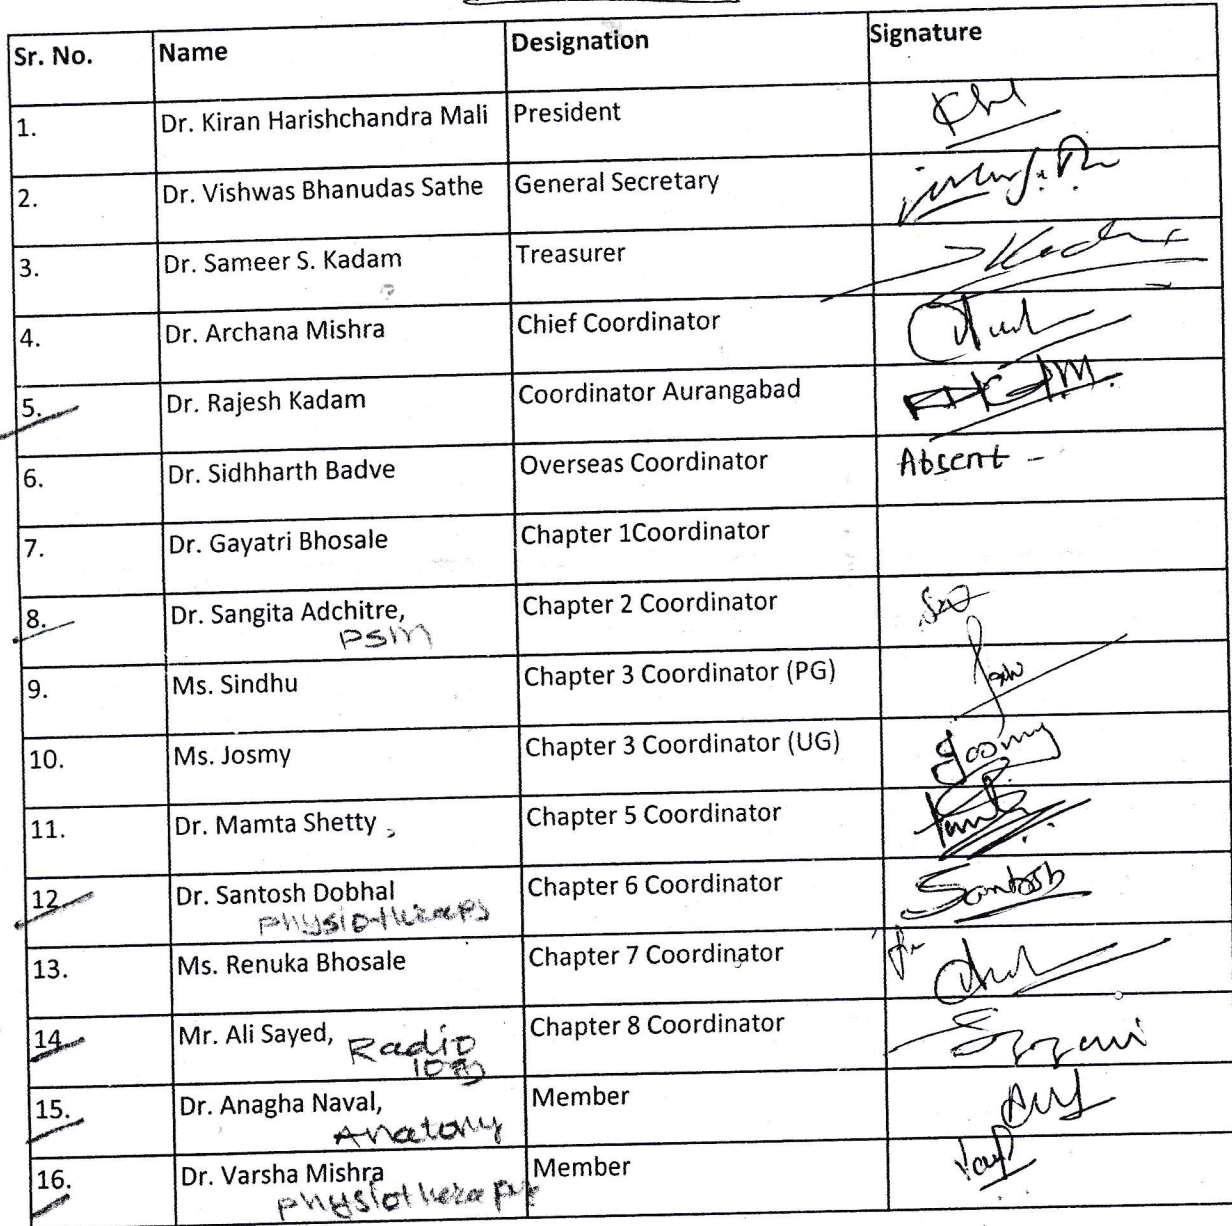 Sr. No. Name Designation Signature
1. Dr. Kiran Harishchandra Mali President
2. Dr. Vishwas Bhanudas Sathe General Secretary
3. Dr. Sameer S. Kadam Treasurer
4. Dr. Archana Mishra Chief Coordinator
5. Dr. Rajesh Kadam Coordinator Aurangabad
6. Dr. Sidhharth Badve Overseas Coordinator Absent -
7. Dr. Gayatri Bhosale Chapter 1Coordinator
8. Dr. Sangita Adchitre, Chapter 2 Coordinator
PSM
9. Ms. Sindhu Chapter 3 Coordinator (PG)
10. Ms. Josmy Chapter 3 Coordinator (UG) Josmy
11. Dr. Mamta Shetty Chapter 5 Coordinator
12. Dr. Santosh Dobhal Chapter 6 Coordinator Santosh
Physiotherapy
13. Ms. Renuka Bhosale Chapter 7 Coordinator
14. Mr. Ali Sayed, Chapter 8 Coordinator
Radio
logy
15. Dr. Anagha Naval, Member
Anatomy
16. Dr. Varsha Mishra Member
Physiotherapy